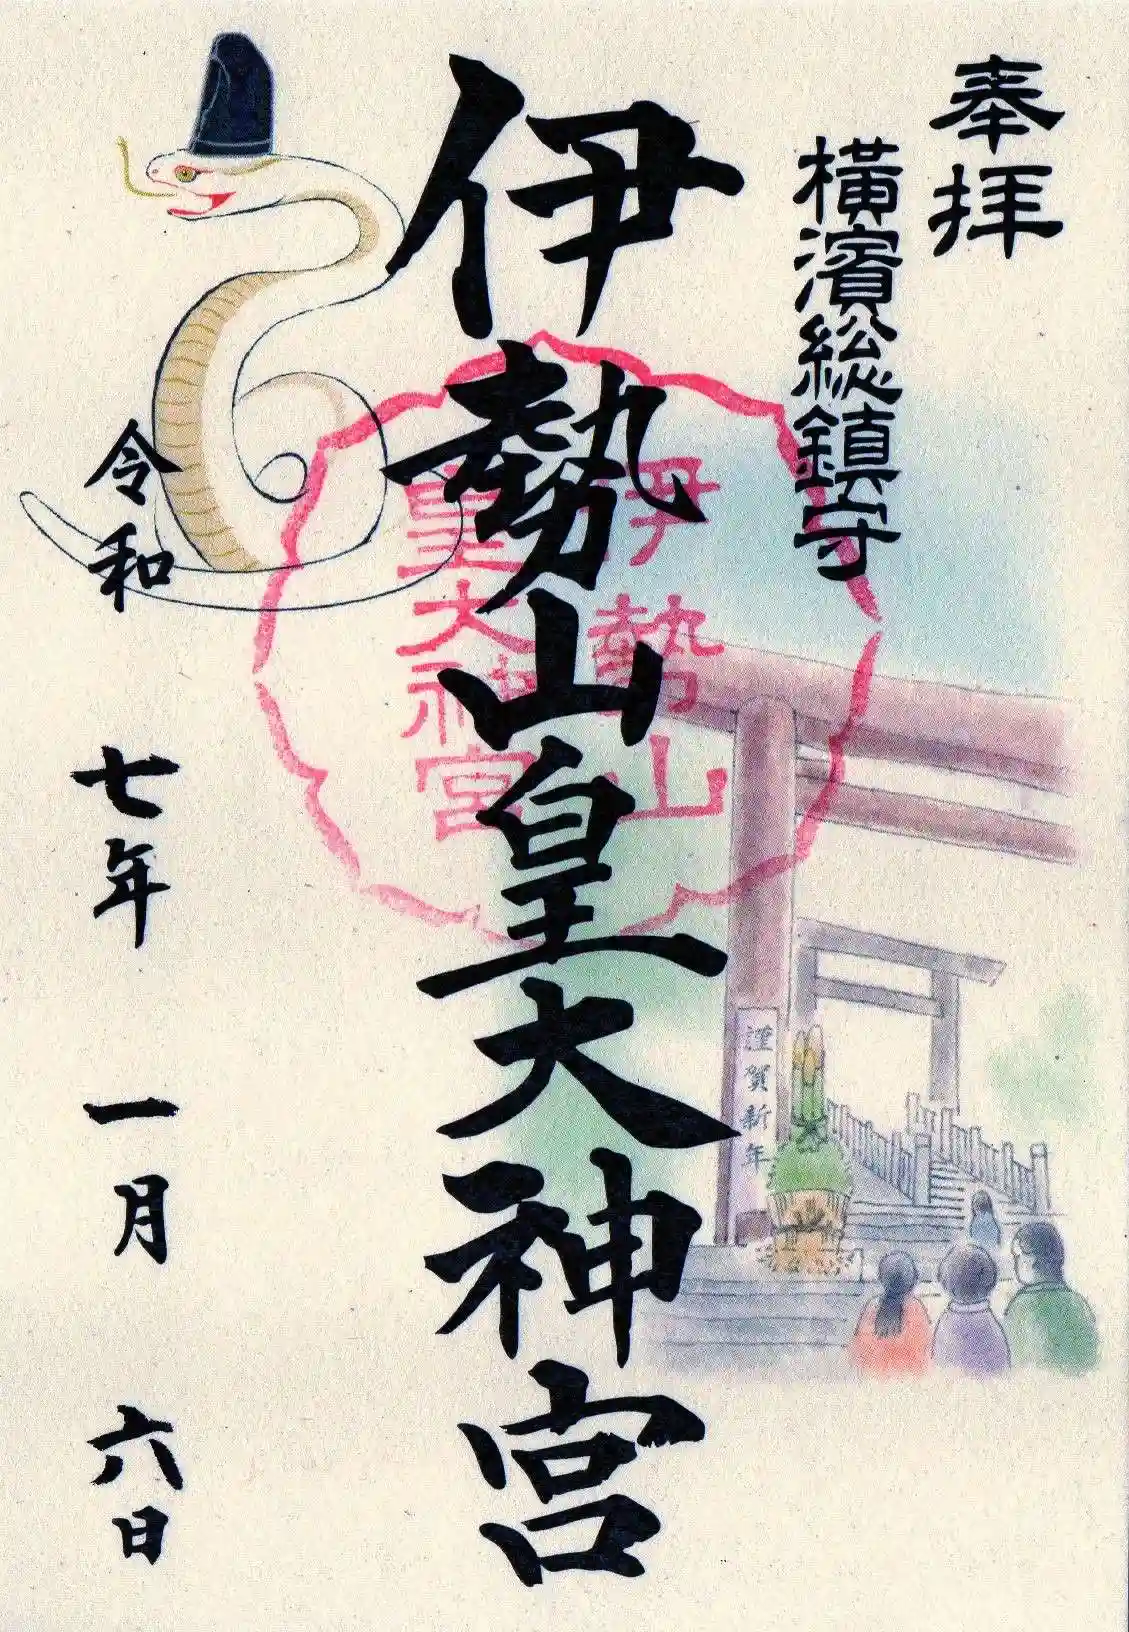 奉拝
横濱総鎮守
伊勢山皇大神宮
伊勢山
皇大神宮
謹賀新年
令和七年一月六日